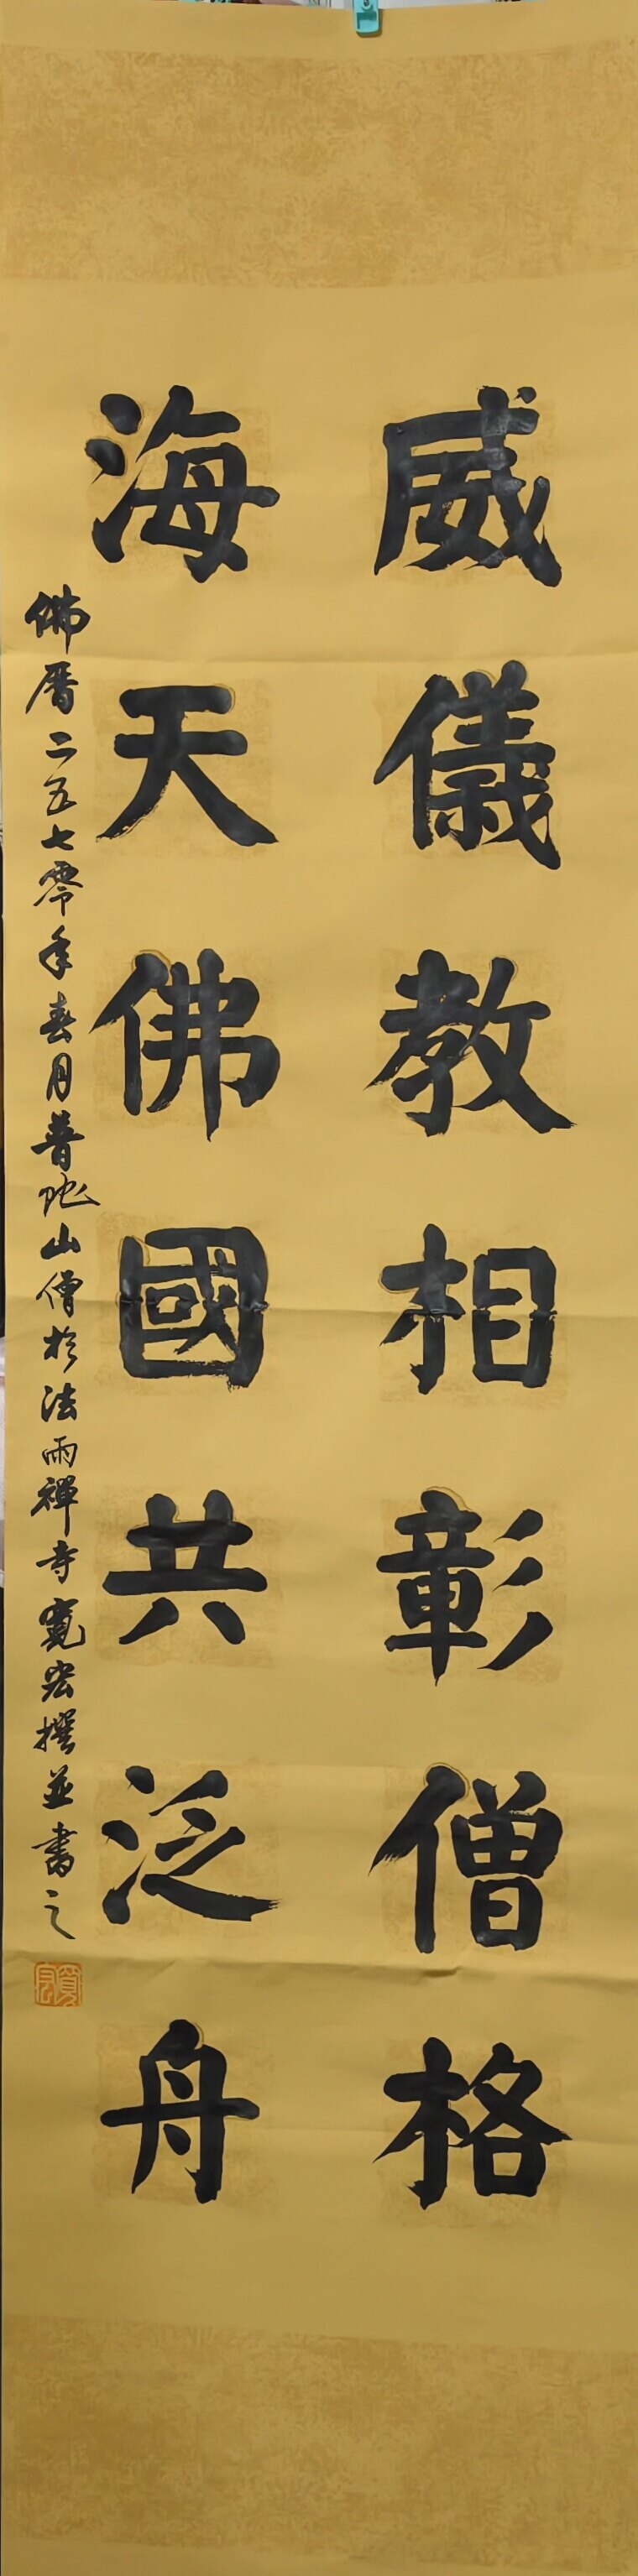 威儀教相彰僧格
海天佛國共泛舟
佛曆二五七零年春月普陀山僧於法雨禪寺寬宏撰並書之